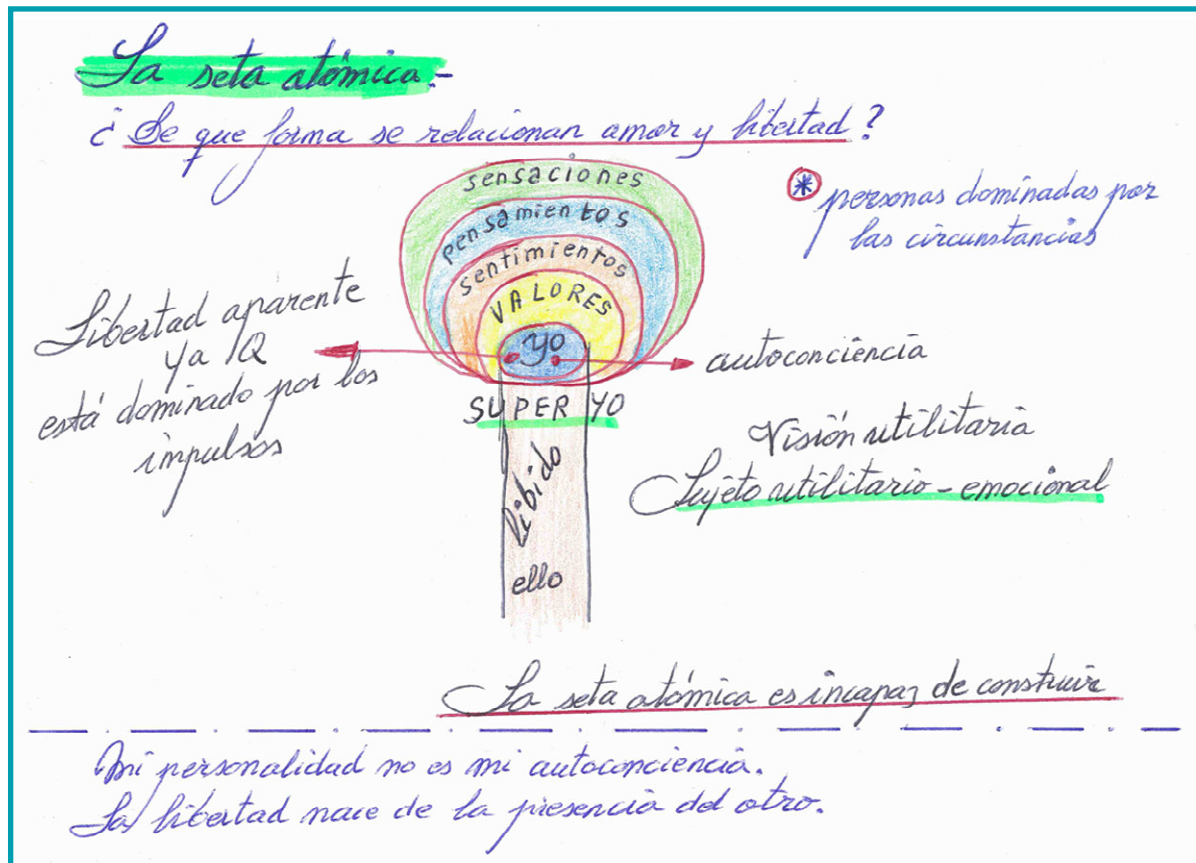 La seta atómica.-
¿ De que forma se relacionan amor y libertad ?
sensaciones
pensamientos
sentimientos
VALORES
yo
* personas dominadas por
las circunstancias
Libertad aparente
ya /Q
está dominado por los
impulsos
autoconciencia
SUPER YO
Visión utilitaria
Sujeto utilitario - emocional
libido
ello
La seta atómica es incapaz de construir
Mi personalidad no es mi autoconciencia.
La libertad nace de la presencia del otro.